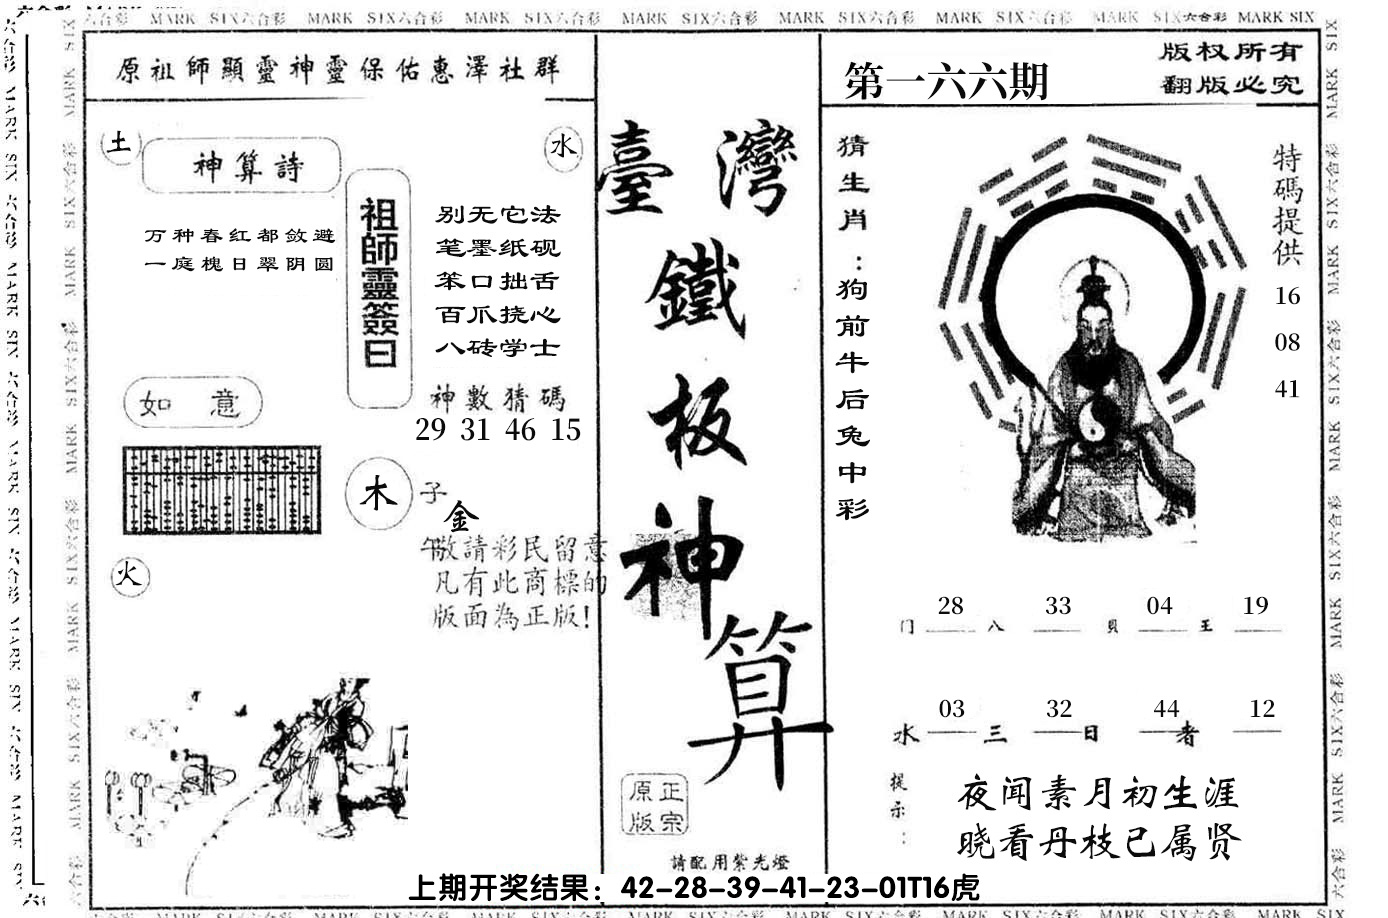 六合彩 MARK SIX六合彩 MARK SIX六合彩 MARK SIX六合彩 MARK SIX六合彩 MARK SIX六合彩 MARK SIX六合彩 MARK SIX六合彩 MARK SIX
原祖師顯靈神靈保佑惠澤社群
土
神算詩
水
万种春红都敛避
一庭槐日翠阴圆
祖師靈簽曰
别无它法
笔墨纸砚
笨口拙舌
百爪挠心
八砖学士
如意
神數猜碼
29 31 46 15
木
子
金
午
敬請彩民留意
凡有此商標的
版面為正版!
火
臺灣
鐵
板
神
算
正宗
原版
請配用紫光燈
第一六六期
版权所有
翻版必究
猜生肖:狗前牛后兔中彩
特碼提供
16
08
41
门 28 八 33 貝 04 王 19
水 03 三 32 日 44 者 12
提示:
夜闻素月初生涯
晓看丹枝已属贤
上期开奖结果：42-28-39-41-23-01T16虎